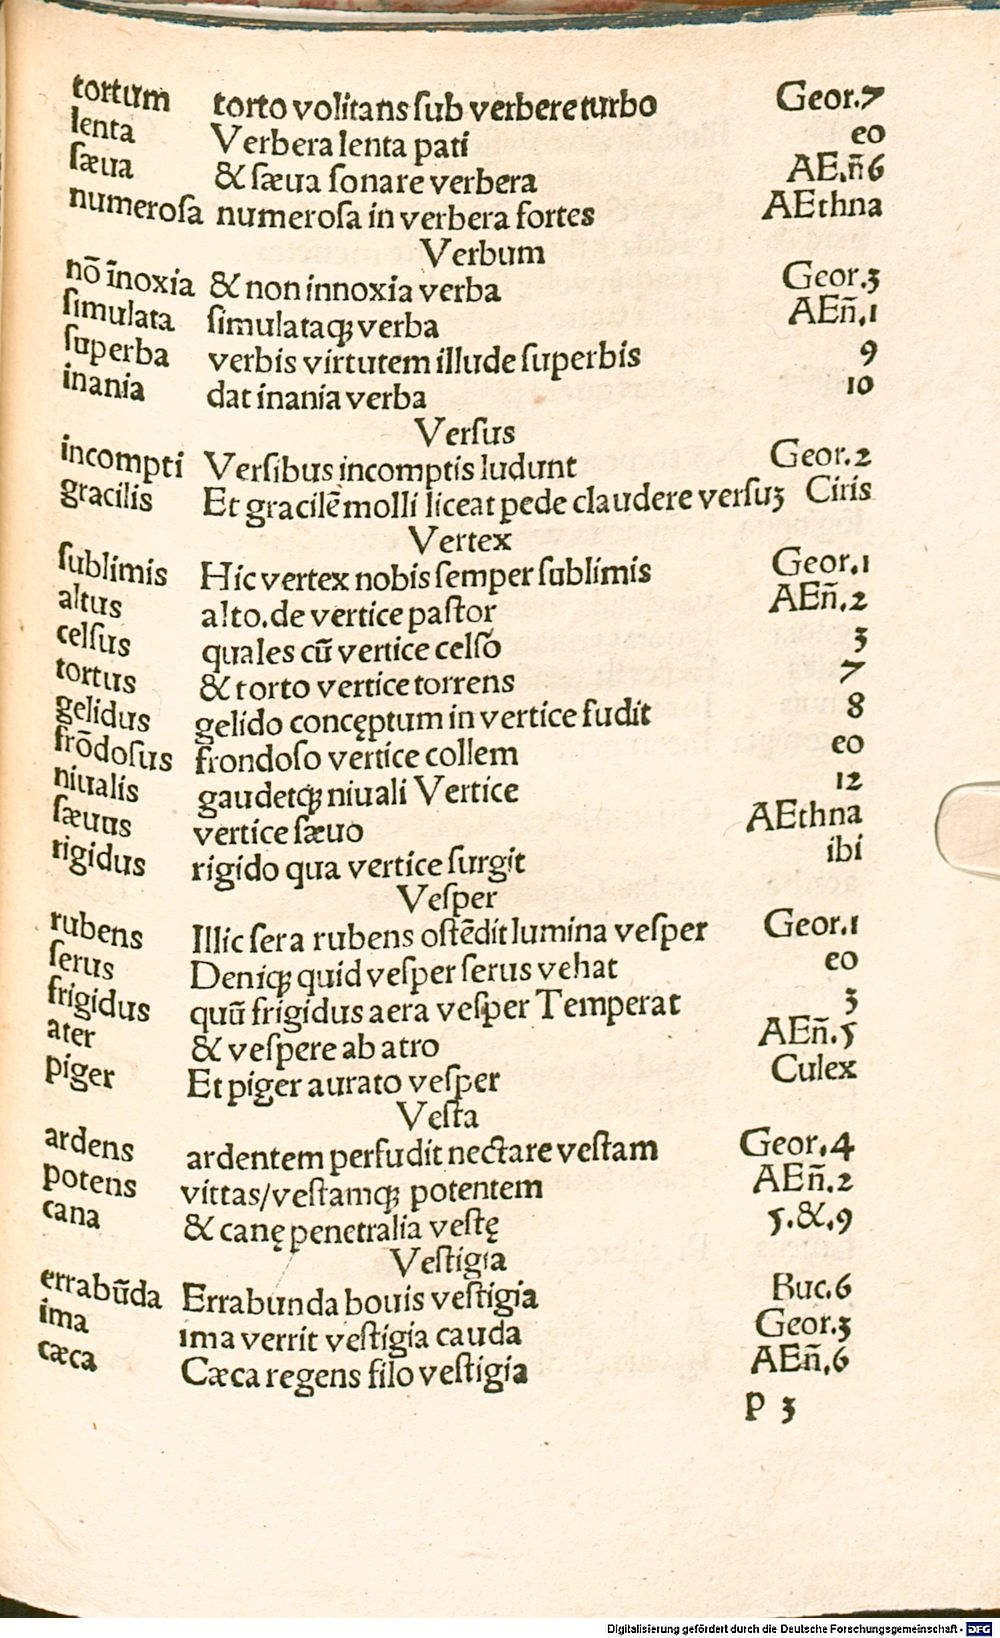 tortum torto volitans ſub verbere turbo Geor.7
lenta Verbera lenta pati eo
ſæua & ſæua ſonare verbera AE.ñ6
numeroſa numeroſa in verbera fortes AEthna
Verbum
nō īnoxia & non innoxia verba Geor.3
ſimulata ſimulataqꝫ verba AEñ.1
ſuperba verbis virtutem illude ſuperbis 9
inania dat inania verba 10
Verſus
incompti Verſibus incomptis ludunt Geor.2
gracilis Et gracilē molli liceat pede claudere verſuꝫ Ciris
Vertex
ſublimis Hic vertex nobis ſemper ſublimis Geor.1
altus alto.de vertice paſtor AEñ.2
celſus quales cū vertice celſo 3
tortus & torto vertice torrens 7
gelidus gelido concęptum in vertice fudit 8
frōdoſus frondoſo vertice collem eo
niualis gaudetqꝫ niuali Vertice 12
ſæuus vertice ſæuo AEthna
rigidus rigido qua vertice ſurgit ibi
Veſper
rubens Illic ſera rubens oſtēdit lumina veſper Geor.1
ſerus Deniqꝫ quid veſper ſerus vehat eo
frigidus quū frigidus aera veſper Temperat 3
ater & veſpere ab atro AEñ.5
piger Et piger aurato veſper Culex
Veſta
ardens ardentem perfudit nectare veſtam Geor.4
potens vittas/veſtamqꝫ potentem AEñ.2
cana & canę penetralia veſtę 5.&.9
Veſtigia
errabūda Errabunda bouis veſtigia Buc.6
ima ima verrit veſtigia cauda Geor.3
cæca Cæca regens filo veſtigia AEñ.6
p 3
Digitalisierung gefördert durch die Deutsche Forschungsgemeinschaft - DFG